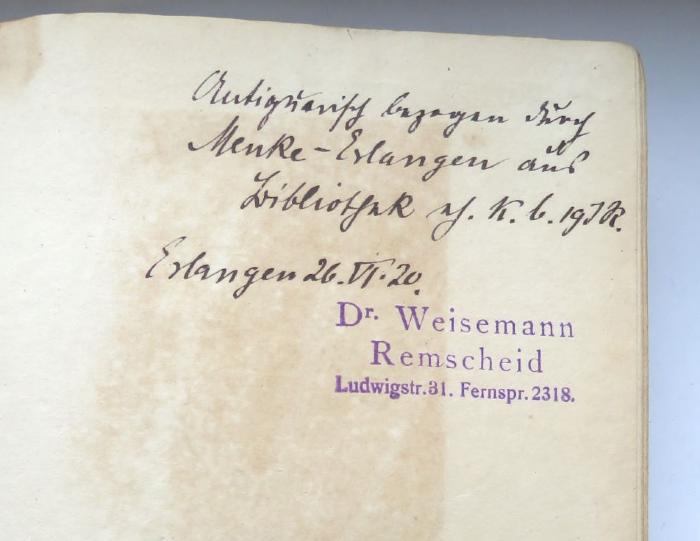 Antiquarisch bezogen durch
Menke-Erlangen aus
Bibliothek K. b.
Erlangen 26. VI. 20.
Dr. Weisemann
Remscheid
Ludwigstr. 31. Fernspr. 2318.